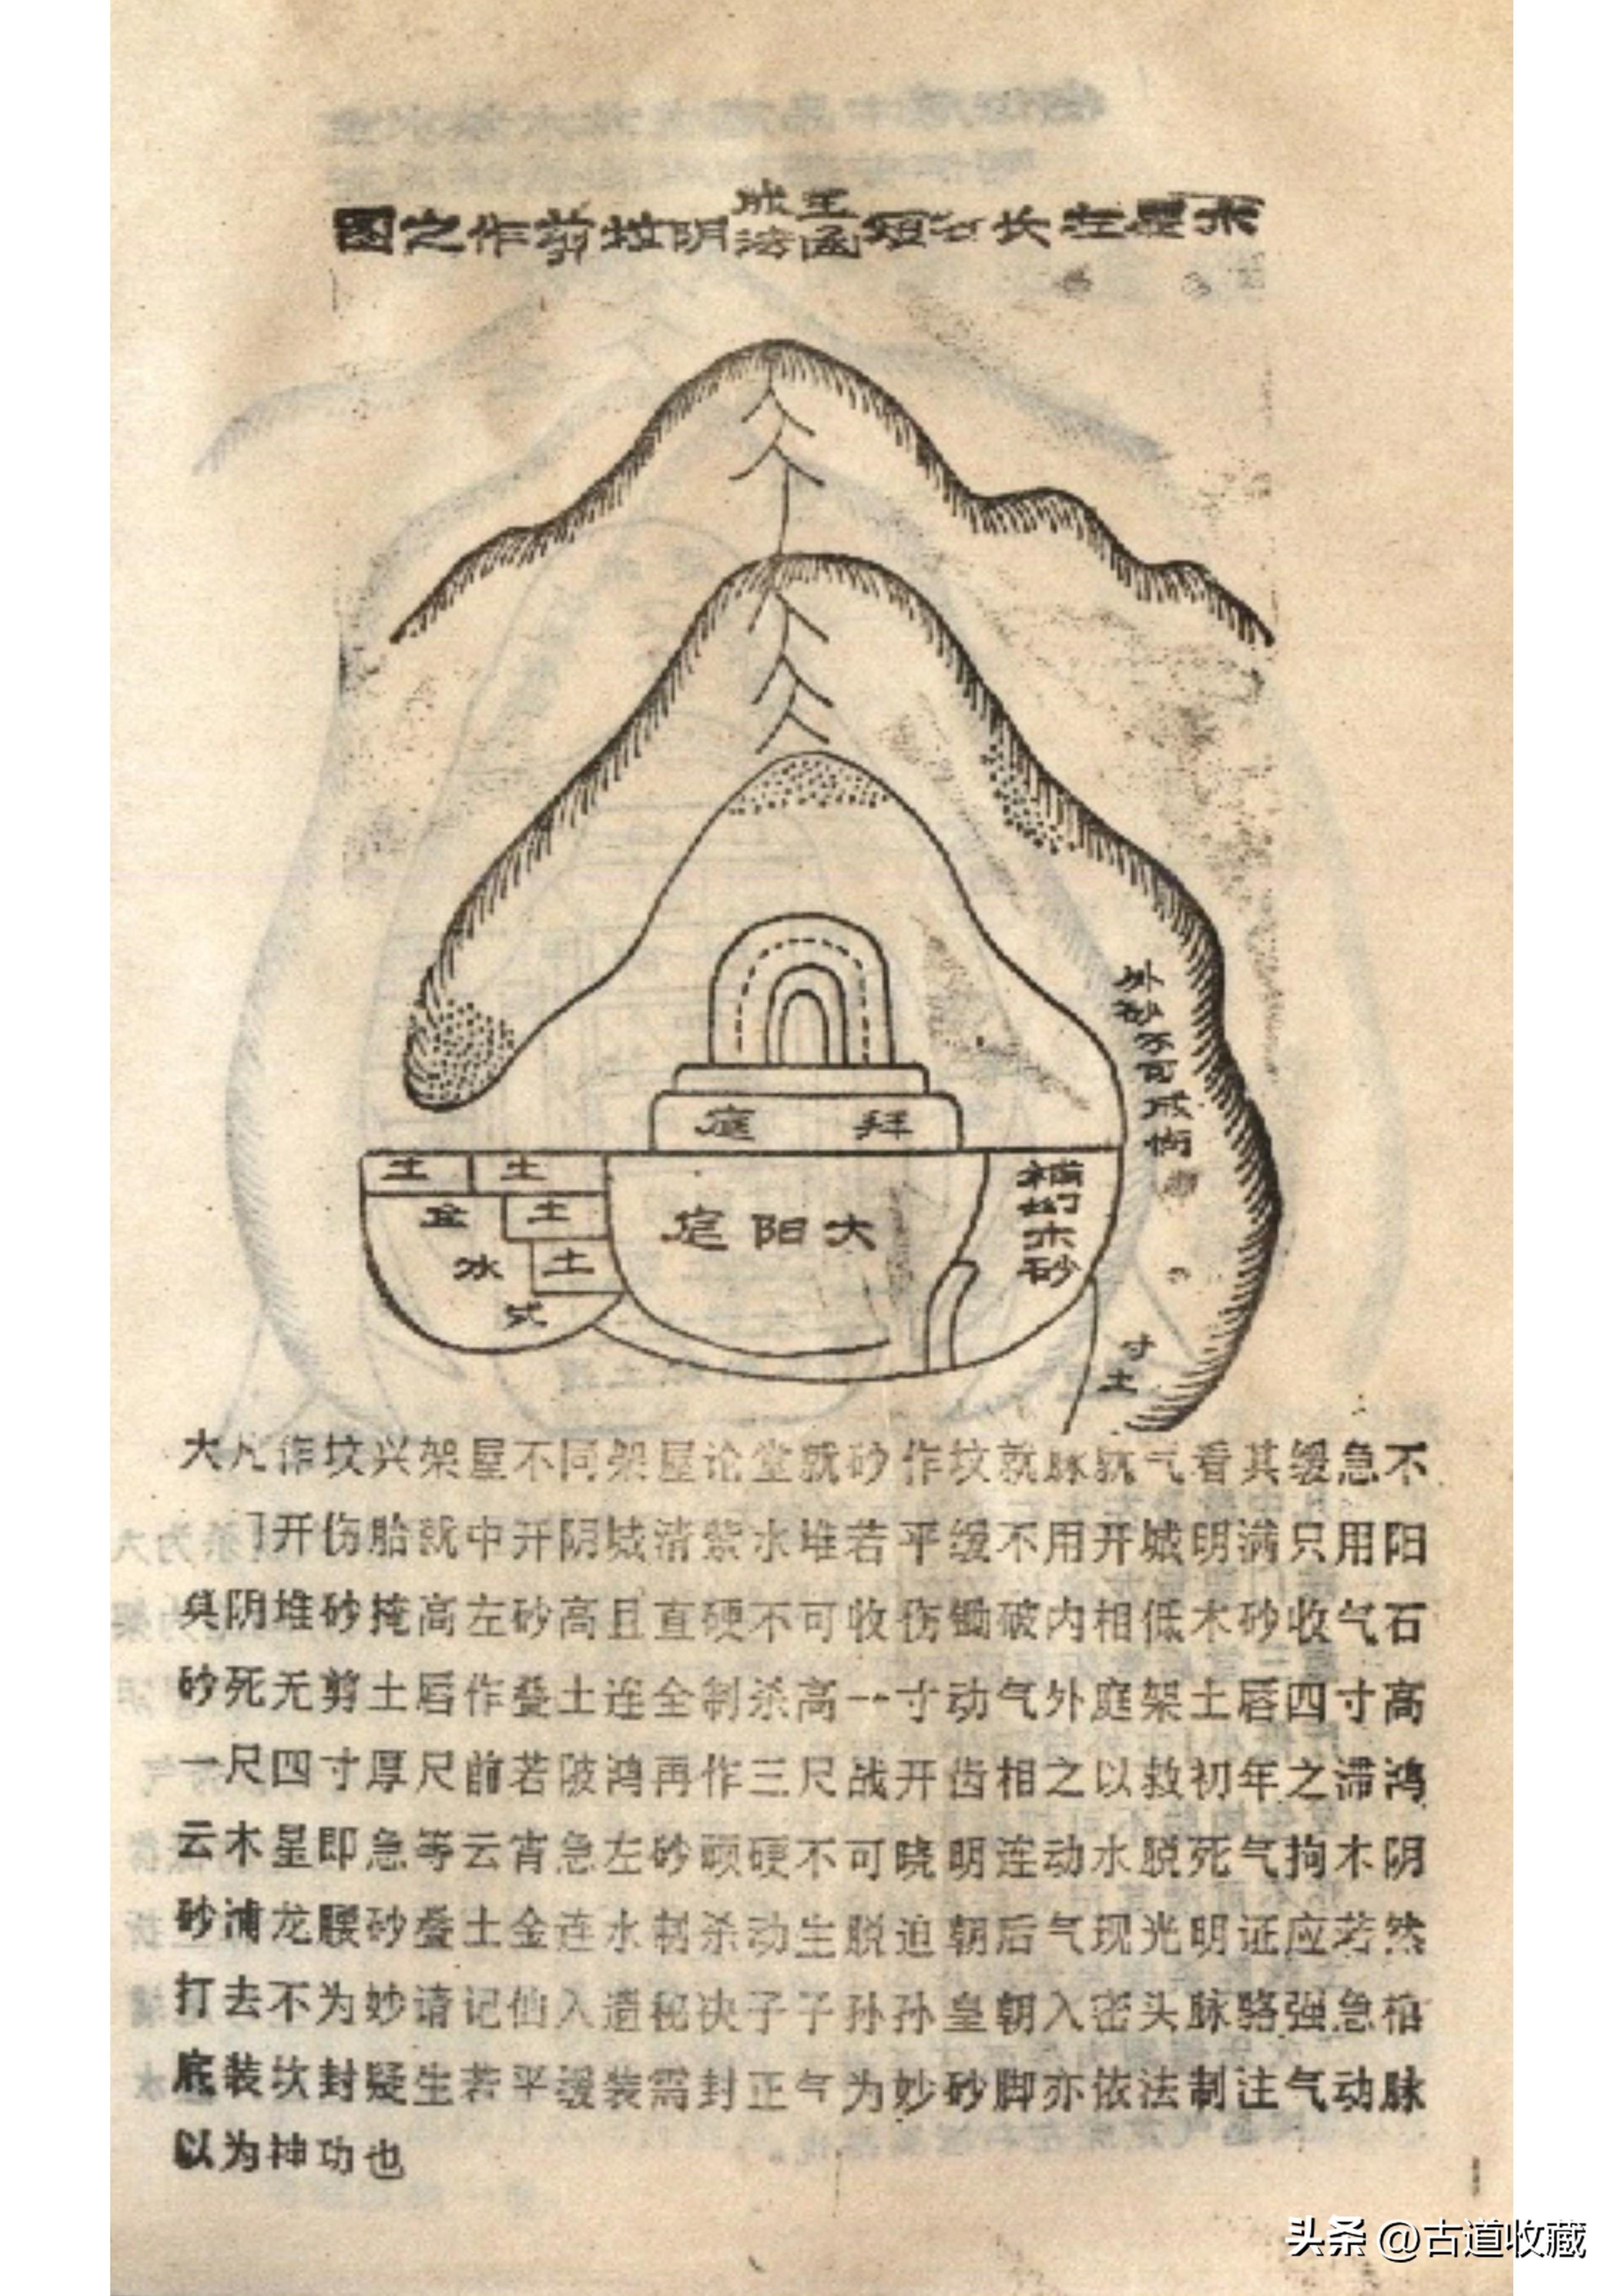 木星左长右短王函成法阴坟剪作之图
外砂不可成伤
拜庭
土土
金土
水土
式
大阳庭
补灼木砂
寸土
大凡作坟兴架屋不同架屋论堂就砂作坟就脉就气看其缓急不
开伤胎就中开阴城清紫水堆若平缓不用开城明满只用阳
矣阴堆砂掩高左砂高且直硬不可收伤锄破内相低木砂收气石
砂死无剪土唇作叠土连全制杀高一寸动气外庭架土唇四寸高
一尺四寸厚尺前若陂鸿再作三尺战开齿相之以救初年之滞鸿
云木星即急等云宵急左砂硕硬不可晓明连动水脱死气拘木阴
砂浦龙腰砂叠土金连水制杀动生脱迫朝后气现光明证应若然
打去不为妙请记仙人遗秘决子子孙孙皇朝入密头脉骆强急棺
底装坎封疑生若平缓装需封正气为妙砂脚亦依法制注气动脉
以为神功也
头条 @古道收藏